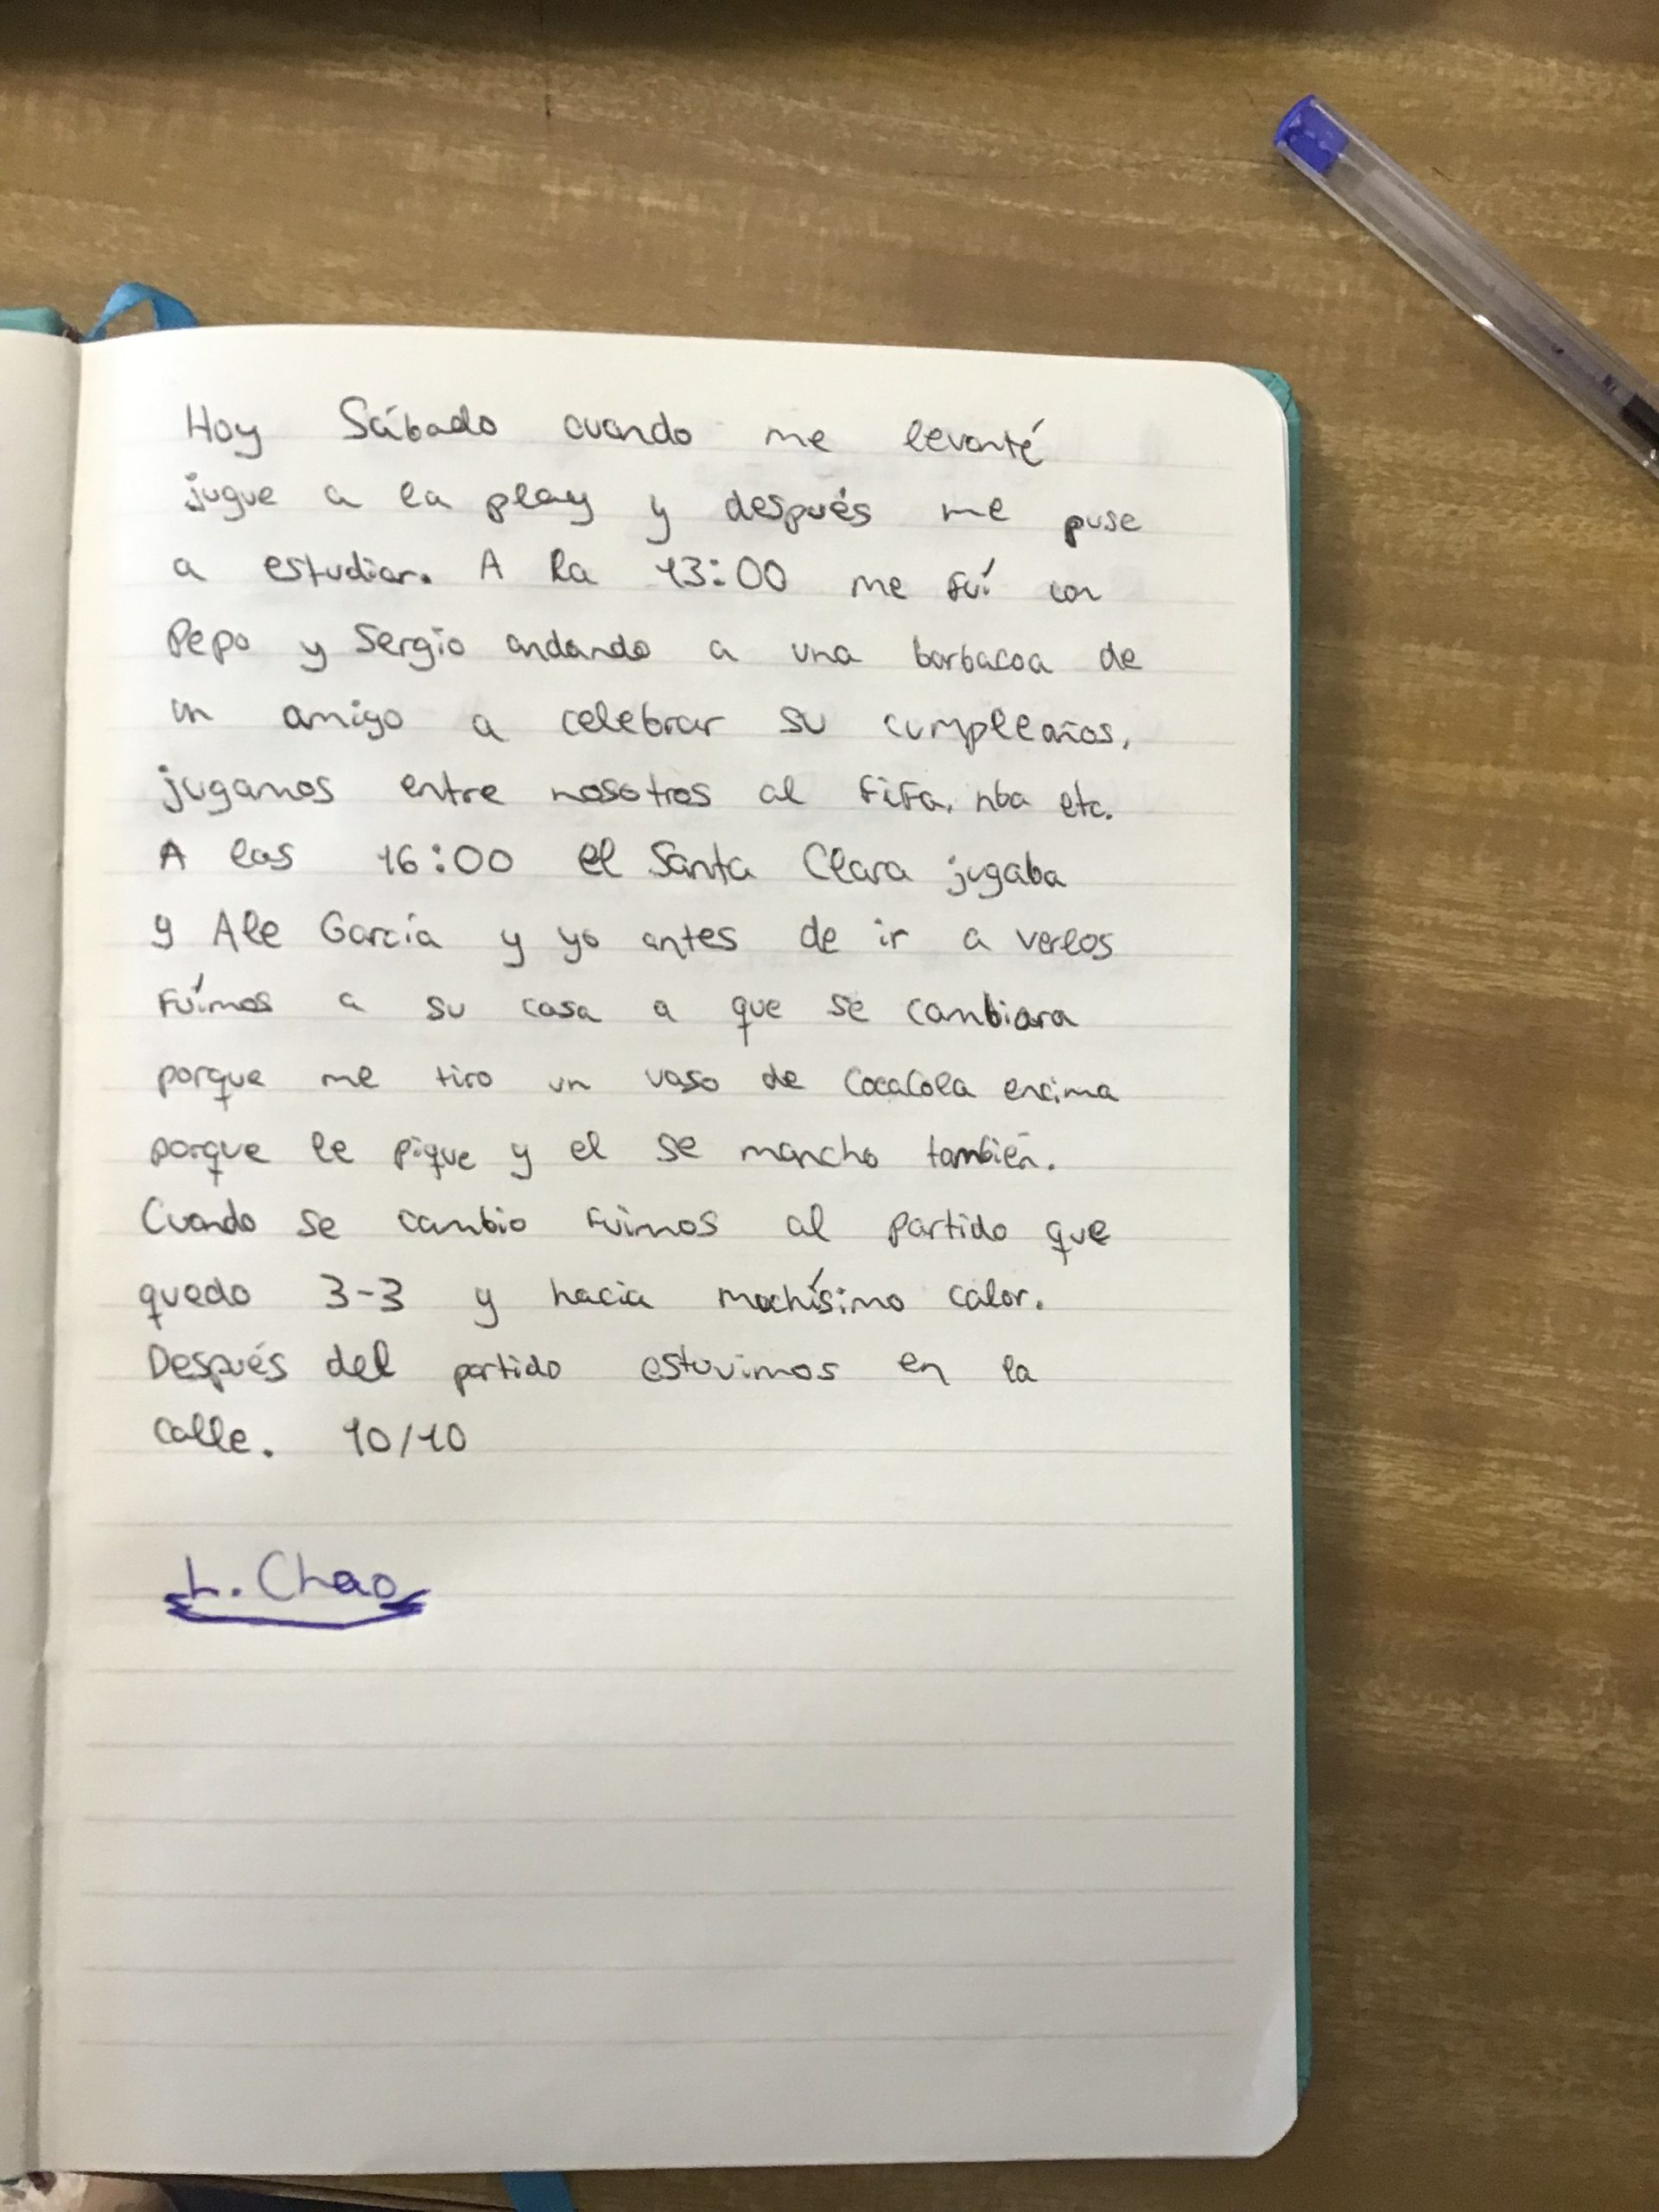 Hoy Sábado cuando me levanté
jugue a la play y después me puse
a estudiar. A la 13:00 me fuí con
Pepo y Sergio andando a una barbacoa de
un amigo a celebrar su cumpleaños,
jugamos entre nosotros al fifa, nba etc.
A las 16:00 el Santa Clara jugaba
y Ale García y yo antes de ir a verlos
fuímos a su casa a que se cambiara
porque me tiro un vaso de CocaCola encima
porque le pique y el se mancho también.
Cuando se cambio fuimos al partido que
quedo 3-3 y hacia muchísimo calor.
Después del partido estuvimos en la
calle. 10/10
L. Chao